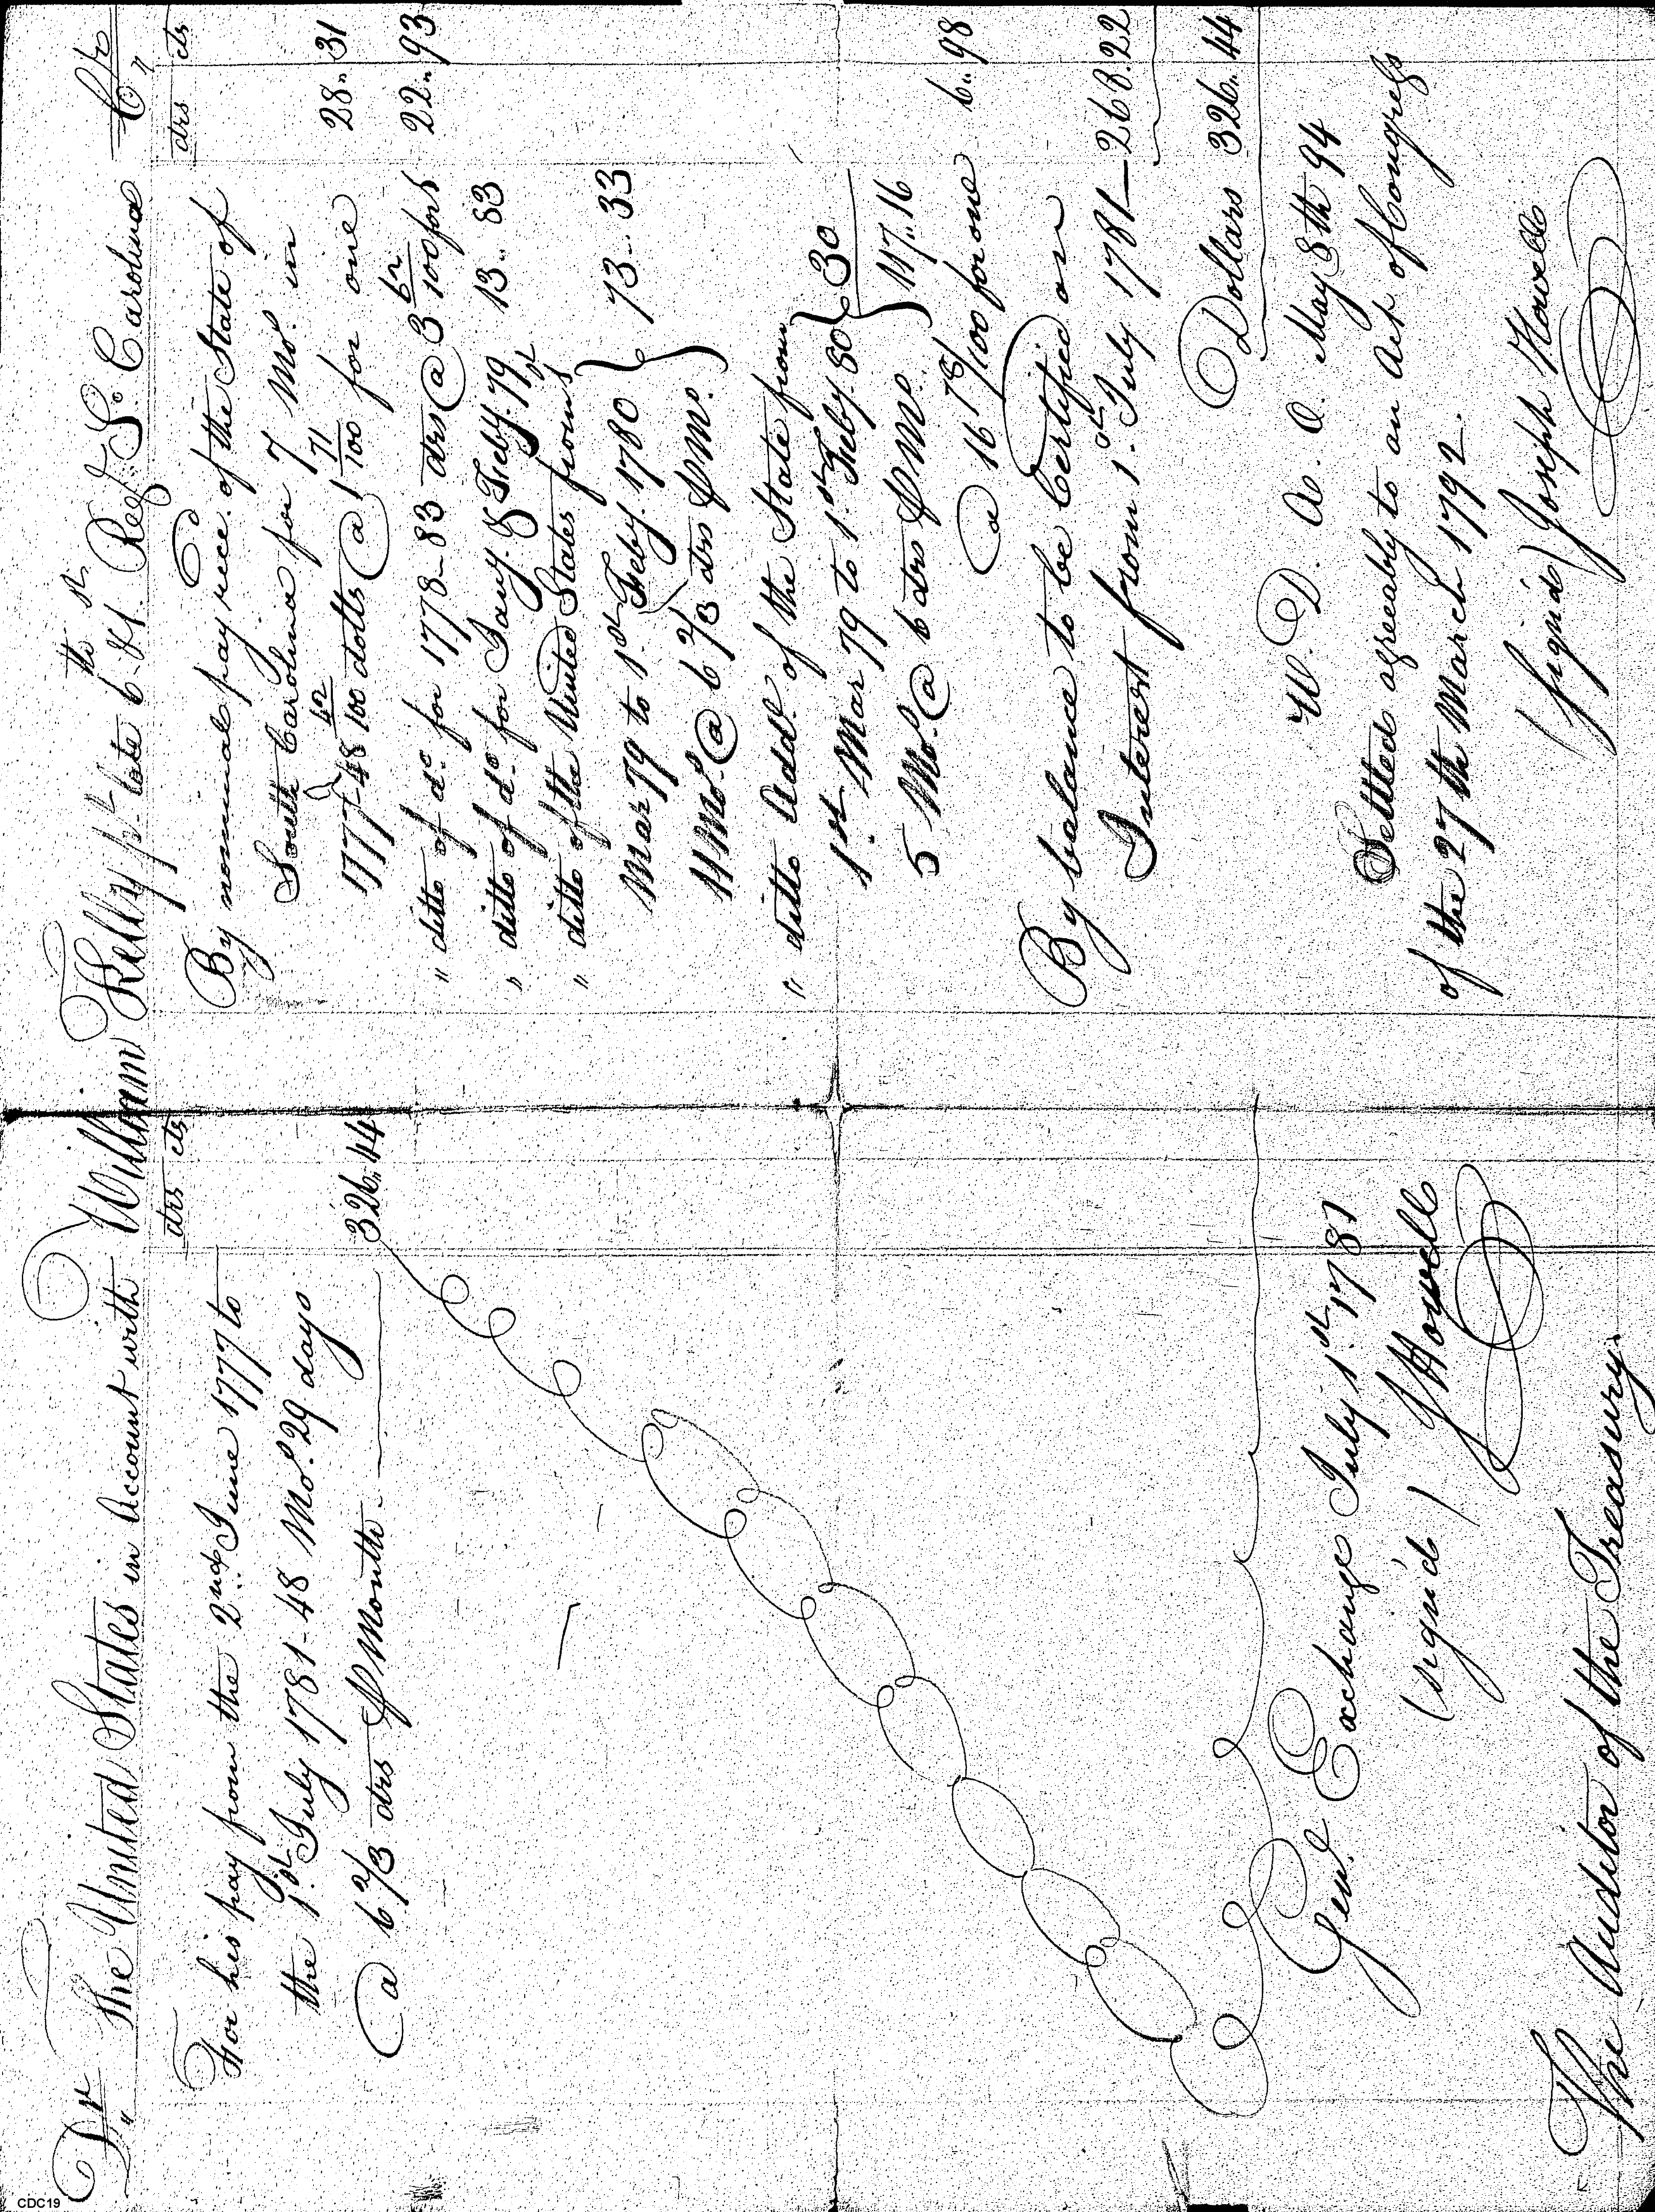 Dr The United States in Account with William Kelly pt late 6th & 1st Reg. So Carolina Cr
drs cts
For his pay from the 2nd June 1777 to
the 1st July 1781 - 48 Mos. 29 days
@ 6 2/3 drs ⅌ Month 326.. 44
Genl Exchange July 1st 1781
(sign'd) J Howell
The Auditor of the Treasury.
drs cts
By nominal pay rece. of the State of
South Carolina for 7 Mo. in
1777 - 48 42/100 dolls @ 1 71/100 for one 28.. 31
" ditto of do. for 1778 - 83 drs @ 3 62/100 for 1 22.. 93
" ditto of do. for Jany. & Feby. 79 13.. 83
" ditto of the United States from 1st
Mar 79 to 1st Feby. 1780 } 73.. 33
11 Mos. @ 6 2/3 drs ⅌ Mo.
" ditto Addl. of the State from
1st Mar 79 to 1st Feby. 80 } 30
5 Mos. @ 6 drs ⅌ Mo. } 117.. 16
@ 16 78/100 for one 6.. 98
By balance to be Certified on
Interest from 1st July 1781 — 268.22
Dollars 326.. 44
W. D. A. O. May 8th 94
Settled agreeably to an Act of Congress
of the 27th March 1792.
(sign'd) Joseph Howell
CDC19